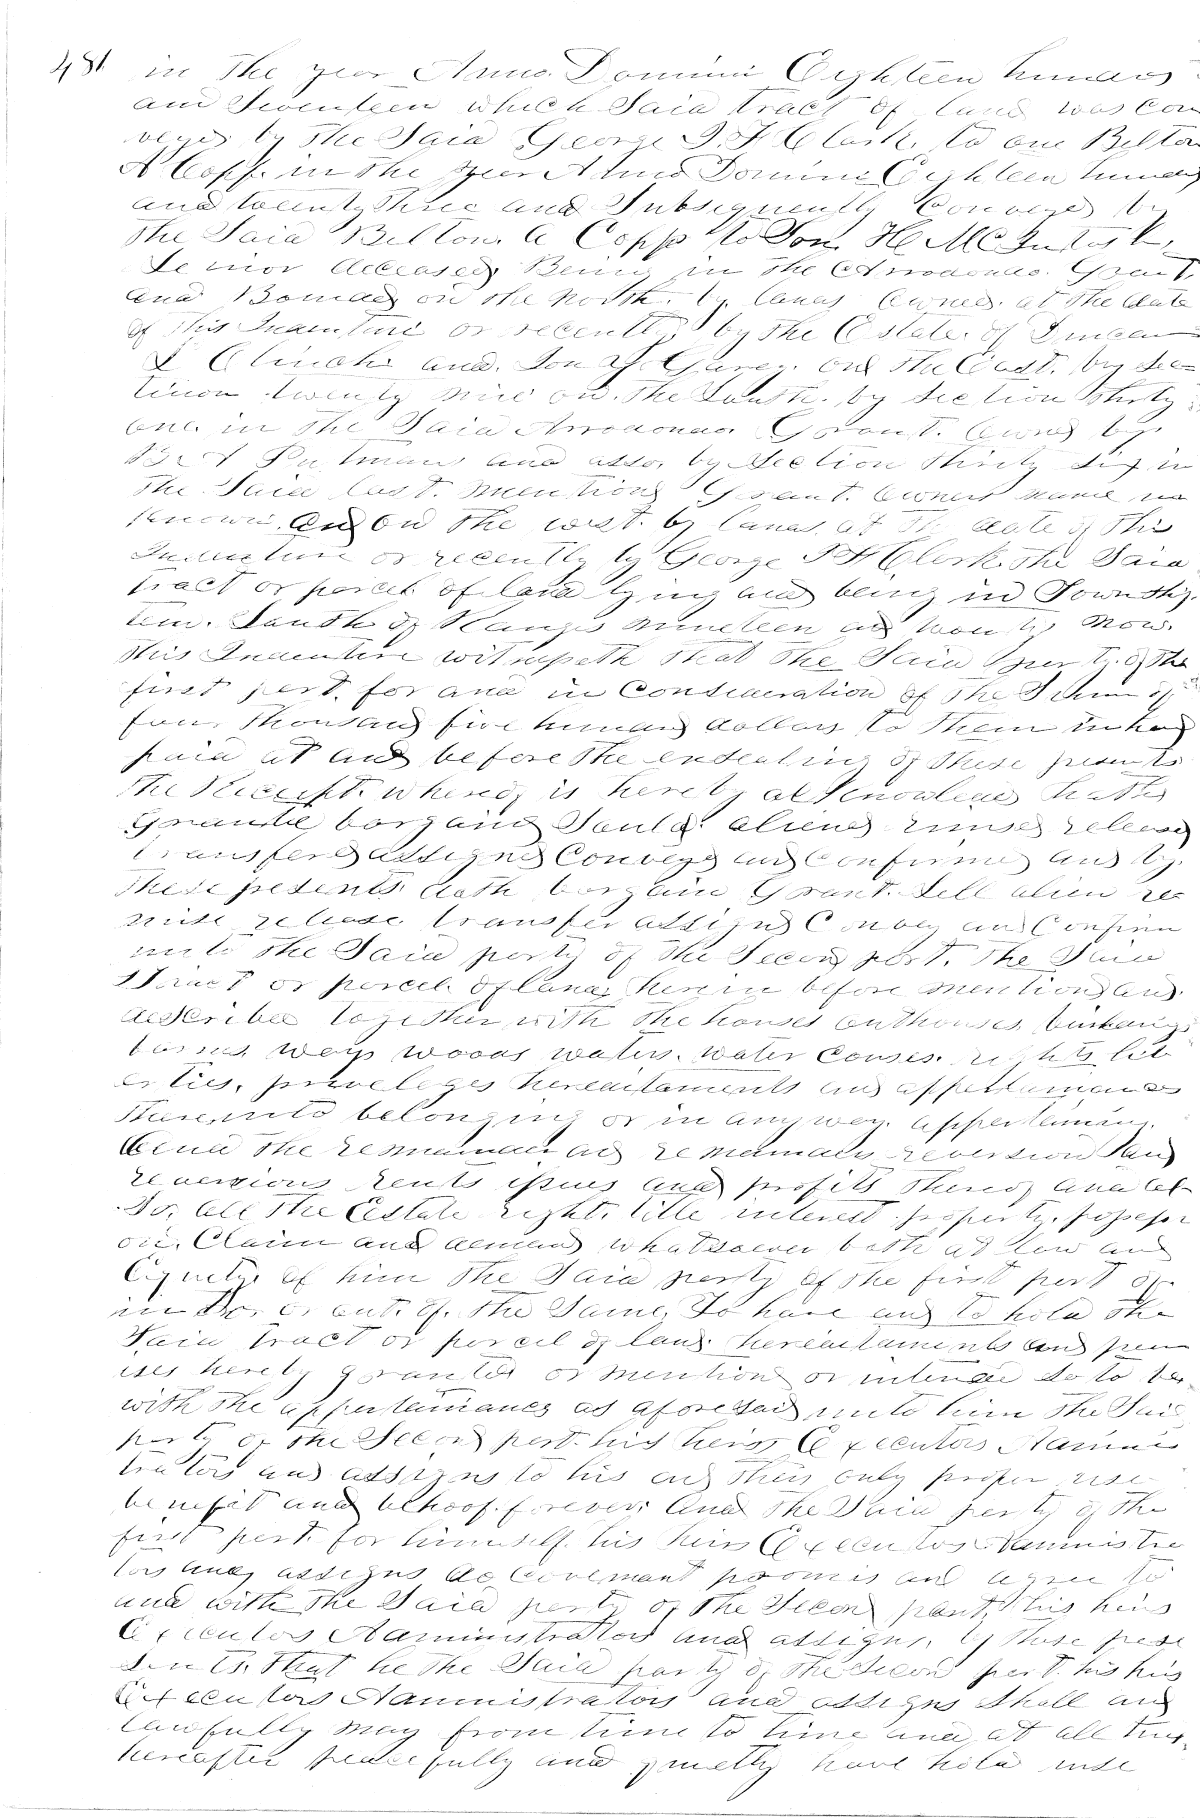 481 in The year Anno. Domini Eighteen hundred
and Seventeen which Said tract of land was con
veyed by the Said George I. F Clark. to one Belton
A Copp. in the year Anno Domini Eighteen hundred
and twenty three and Subsequently Conveyed by
the Said Belton. A Copp to Jon. H. McIntosh,
Senior deceased, Being in the Arredondo. Grant.
and Bounded on the north. by lands owned. at the date
of this Indenture or recently by the Estate. of Duncan
L Clinch and. Jon G. Garey. on the East. by Sec=
tion twenty nine on. the South. by Section thirty
one. in the Said Arredondo. Grant. Owned by
Putmans and also. by Section thirty Six in
the Said last. mentiond Grant. Owners name un
known. and on the west. by lands. at the date of this
Indenture or recently by George I F Clark. the Said
tract or parcel of land lying and being in Township.
ten. South of Range nineteen and twenty Now.
this Indenture witnesseth that the Said party. of the
first part. for and in Consideration of the Sum of
four thousand five hundred dollars to them in hand
paid at and before the ensealing of these presents
the Receipt. whereof is hereby acknowledged hath
Granted bargaind Sould. aliened remised released
transfered assigned Conveyed and Confirmed and by.
these pesents doth bargain Grant. Sell alien re
mise release transfer assign Convey and Confirm
unto the Said party of the Second part. the Said
Tract or parcel. of land, herein before mentiond and.
described together with the houses outhouses, buildings
ways woods waters. water Couses. rights lib
erties, priveleges hereditaments and appertainances
thereunto belonging or in any way. appertaining.
and the remainder and remainders reversion and
reversions rents issues and profits thereof and al
so. all the Estate right. title interest property. possessi
on. Claim and demand whatsoever both at law and
Equity. of him the Said party of the first part of
in to. or out. of. the Same. To have and to hold the
Said tract or parcel of land hereditaments and prem
ises hereby granted or mentiond or intended So to be.
with the appertainances as aforesaid unto him the Said
party of the Second part. his heirs Executors Adminis
trators and assigns to his and their only proper use
benefit and behoof. forever. And the Said party of the
first part. for himself. his heirs Executors Administra
tors and, assigns do Covenant promis and agree to
and with the Said party of the Second part, his heirs
Executors Administrators and assigns, by these prese
sents. that he the Said party of the Second part. his heirs
Executors Administrators and assigns Shall and
lawfully may from time to time and at all times
hereafter peacefully and quietly have hold use